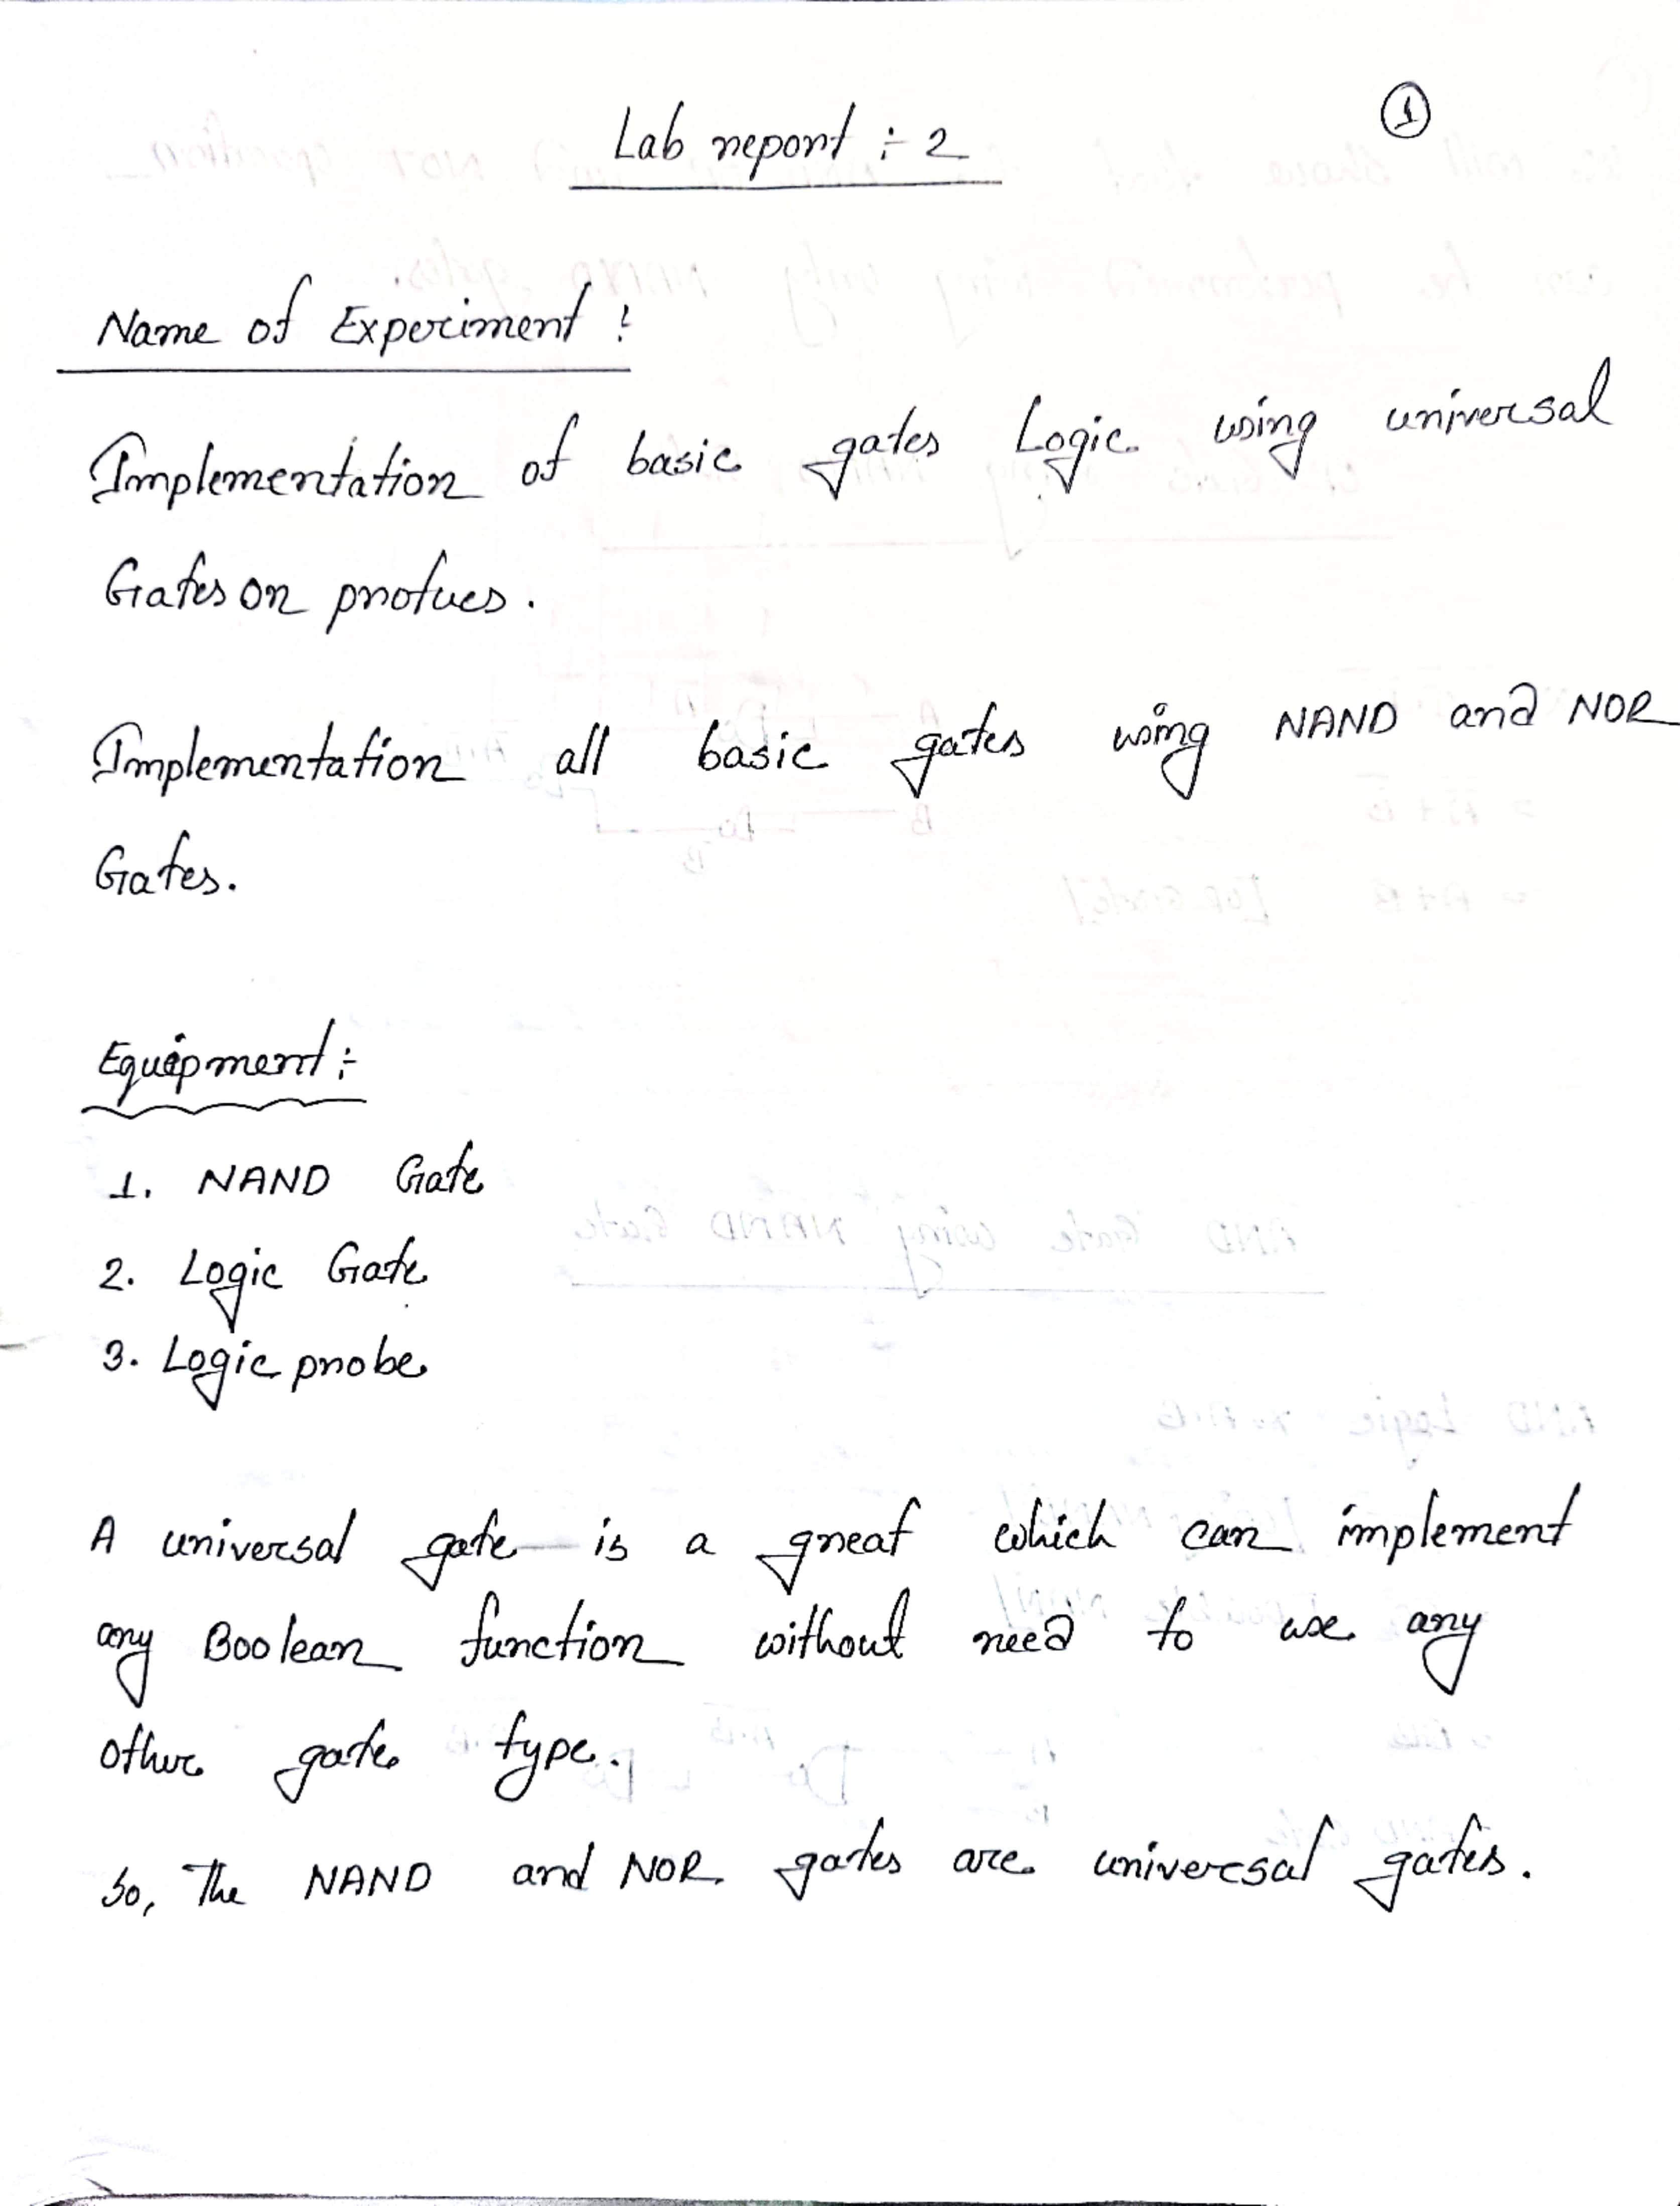 1
Lab report :- 2
Name of Experiment :
Implementation of basic gates Logic using universal
Gates on protues.
Implementation all basic gates using NAND and NOR
Gates.
Equipment :-
1. NAND Gate
2. Logic Gate
3. Logic probe
A universal gate is a great which can implement
any Boolean function without need to use any
other gate type.
So, The NAND and NOR gates are universal gates.